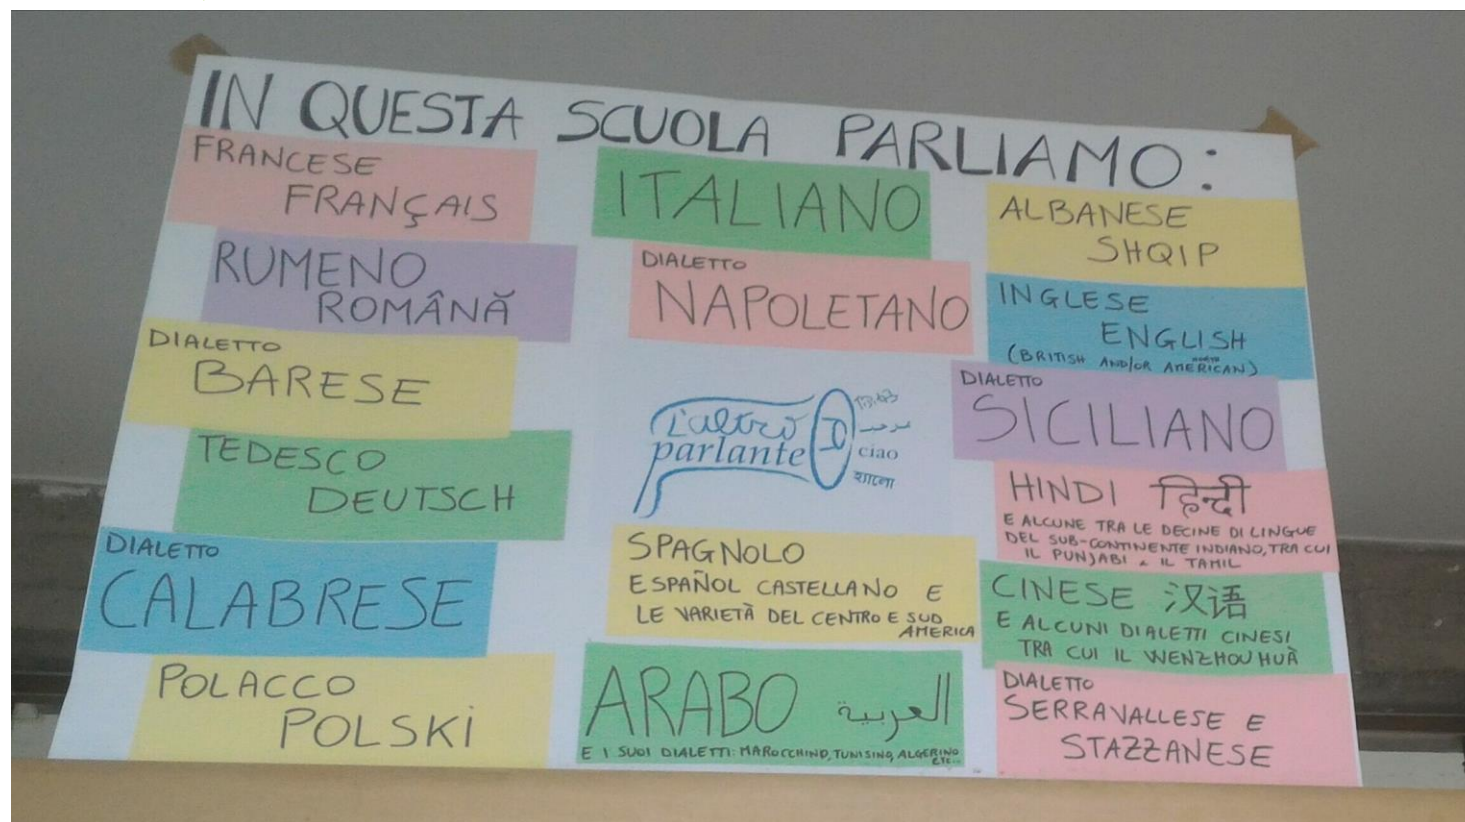 IN QUESTA SCUOLA PARLIAMO:
FRANCESE
FRANÇAIS
RUMENO
ROMÂNĂ
DIALETTO
BARESE
TEDESCO
DEUTSCH
DIALETTO
CALABRESE
POLACCO
POLSKI
ITALIANO
DIALETTO
NAPOLETANO
l'altro
parlante
ciao
SPAGNOLO
ESPAÑOL CASTELLANO E
LE VARIETÀ DEL CENTRO E SUD
AMERICA
ARABO العربية
E I SUOI DIALETTI: MAROCCHINO, TUNISINO, ALGERINO
ETC...
ALBANESE
SHQIP
INGLESE
ENGLISH
(BRITISH AND/OR NORTH AMERICAN)
DIALETTO
SICILIANO
HINDI हिन्दी
E ALCUNE TRA LE DECINE DI LINGUE
DEL SUB-CONTINENTE INDIANO, TRA CUI
IL PUNJABI e IL TAMIL
CINESE 汉语
E ALCUNI DIALETTI CINESI
TRA CUI IL WENZHOUHUÀ
DIALETTO
SERRAVALLESE E
STAZZANESE